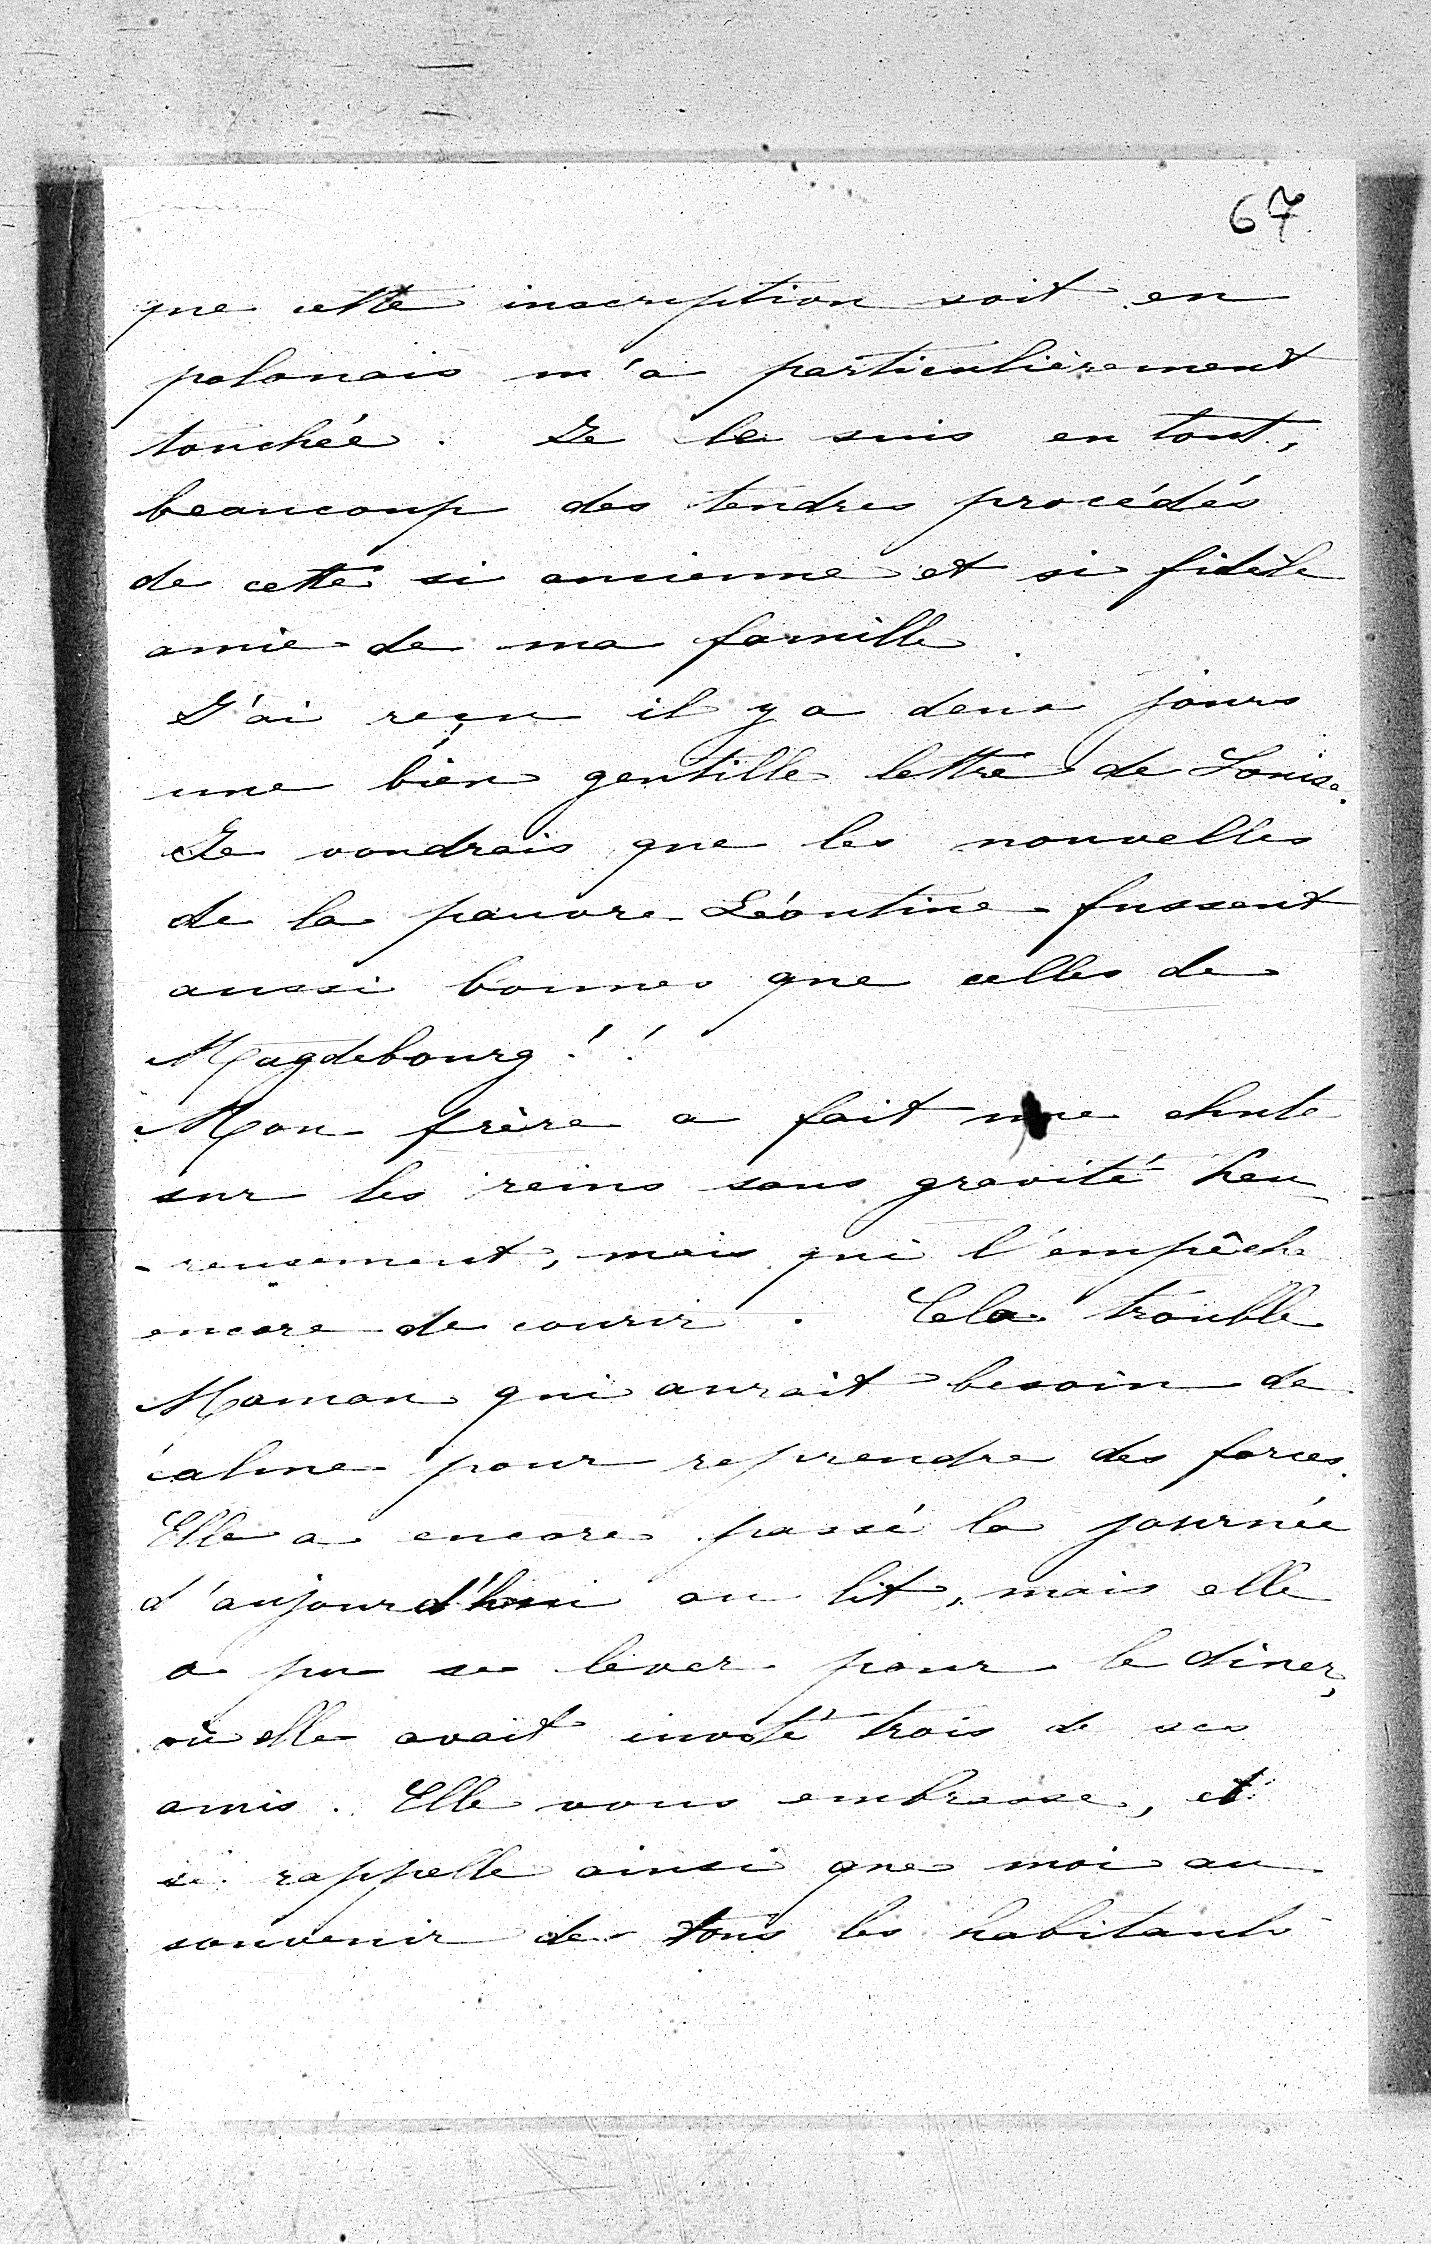 67
que cette inscription soit en
polonais m'a particulièrement
touchée. Je le suis en tout,
beaucoup des tendres procédés
de cette si ancienne et si fidèle
amie de ma famille.
J'ai reçu il y a deux jours
une bien gentille lettre de Louise.
Je voudrais que les nouvelles
de la pauvre Léontine fussent
aussi bonnes que celles de
Magdebourg!!
Mon frère a fait une chute
sur les reins sans gravité heu
-reusement, mais qui l'empêche
encore de courir. Cela trouble
Maman qui aurait besoin de
calme pour reprendre des forces.
Elle a encore passé la journée
d'aujourd'hui au lit, mais elle
a pu se lever pour le dîner,
où elle avait invité trois de ses
amis. Elle vous embrasse, et
se rappelle ainsi que moi au
souvenir de tous les habitants